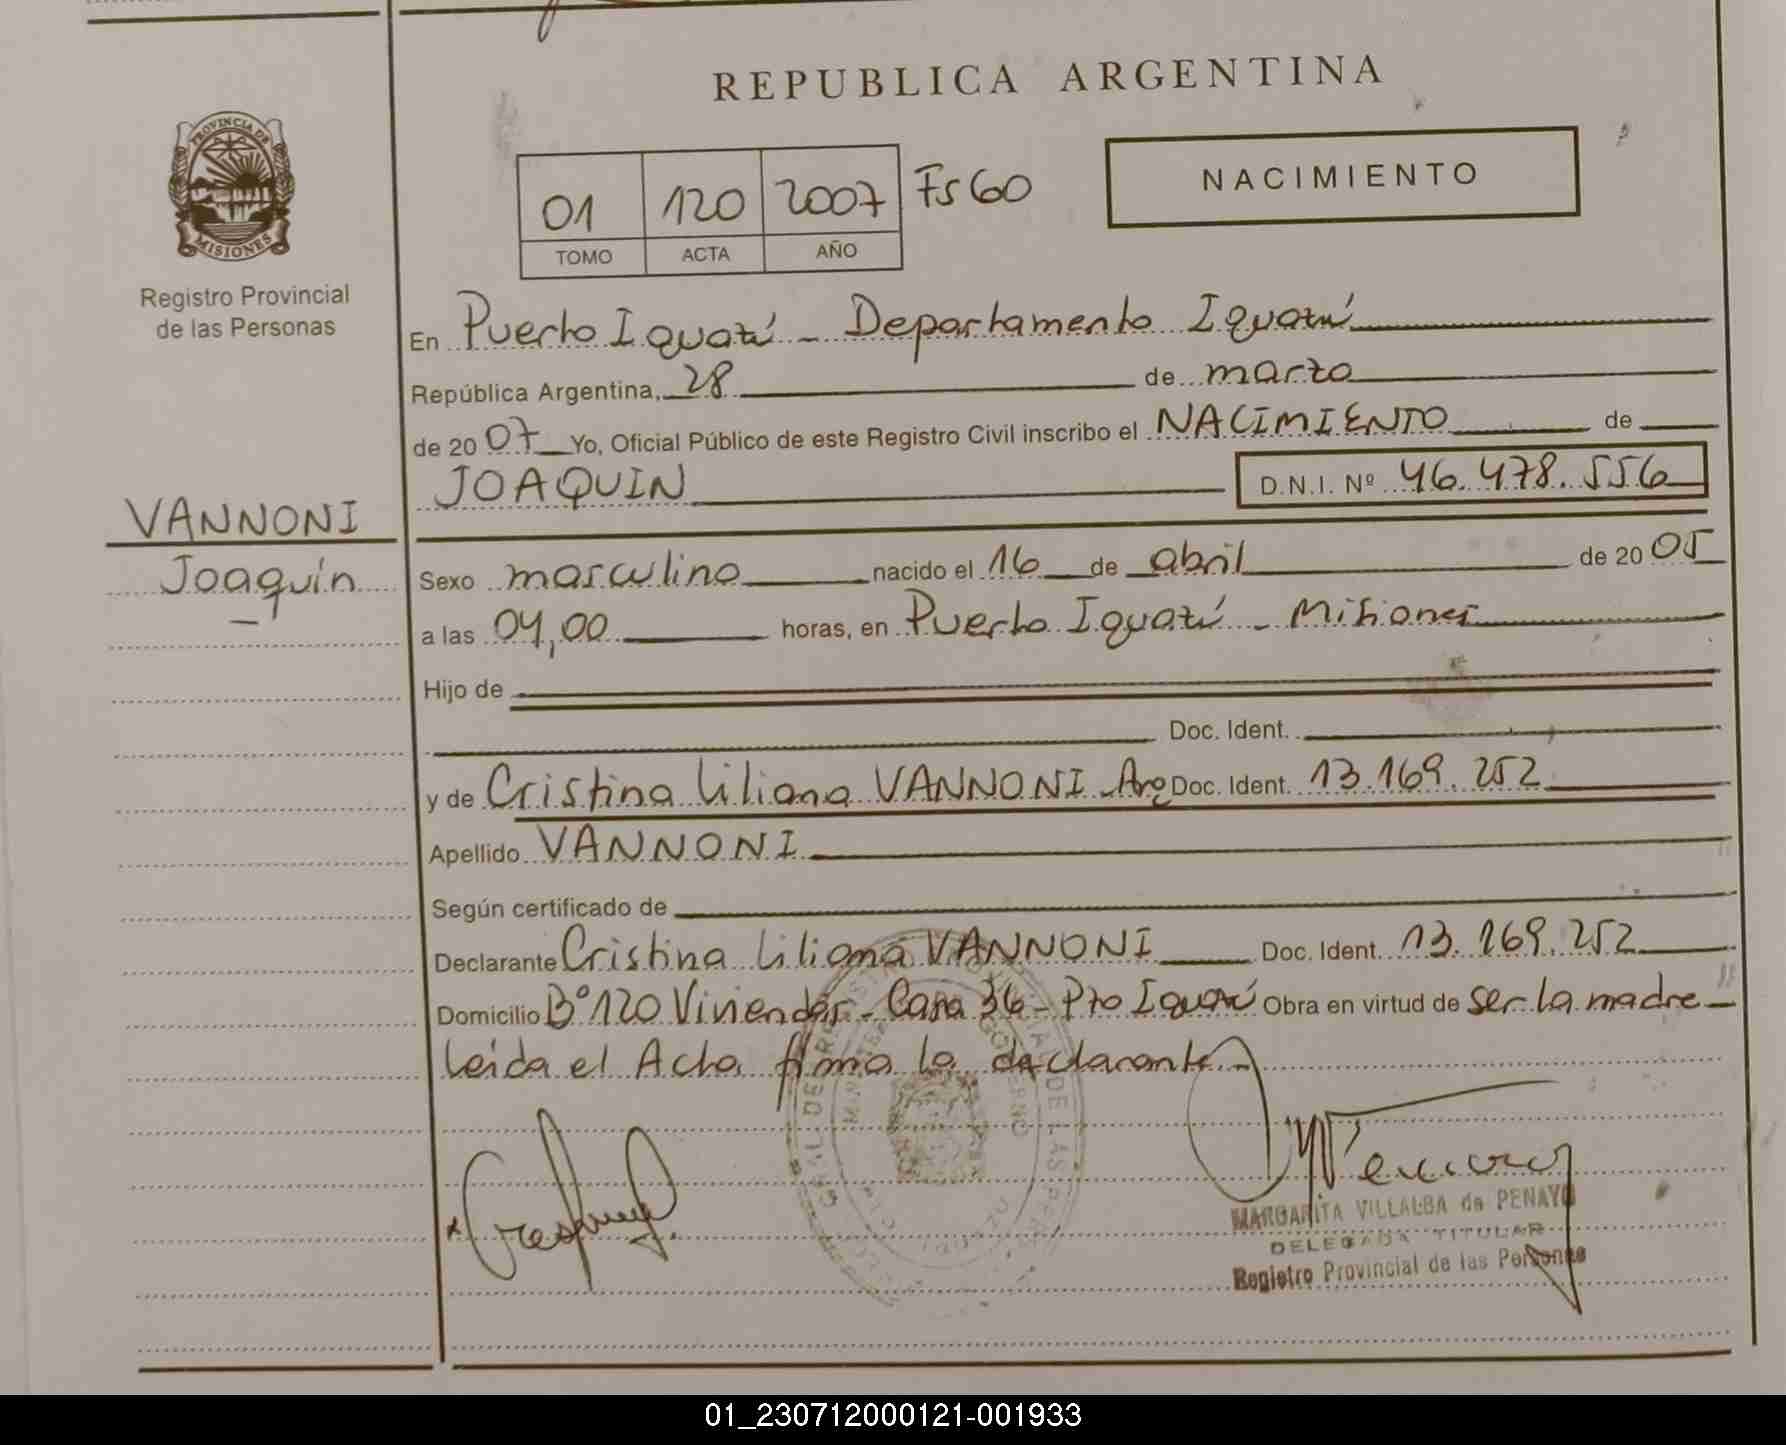 REPUBLICA ARGENTINA
PROVINCIA DE
MISIONES
Registro Provincial
de las Personas
01 120 2007 Fs 60
TOMO ACTA AÑO
NACIMIENTO
En Puerto Iguazú - Departamento Iguazú
República Argentina, 28 de marzo
de 2007 Yo, Oficial Público de este Registro Civil inscribo el NACIMIENTO de
JOAQUIN D.N.I. Nº 46.478.556
VANNONI
Joaquín
Sexo masculino nacido el 16 de abril de 2005
a las 04,00 horas, en Puerto Iguazú - Misiones
Hijo de
Doc. Ident.
y de Cristina Liliana VANNONI - Arg Doc. Ident. 13.169.252
Apellido VANNONI
Según certificado de
Declarante Cristina Liliana VANNONI Doc. Ident. 13.169.252
Domicilio Bº 120 Viviendas - Casa 36 - Pto Iguazú Obra en virtud de ser la madre
leída el Acta firma la declarante -
MARGARITA VILLALBA de PENAYO
DELEGADA TITULAR
Registro Provincial de las Personas
01_230712000121-001933